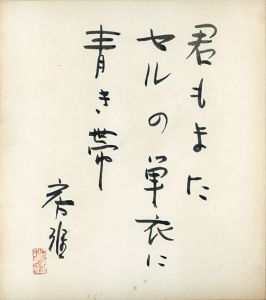 君もまた
セルの単衣に
青き帯